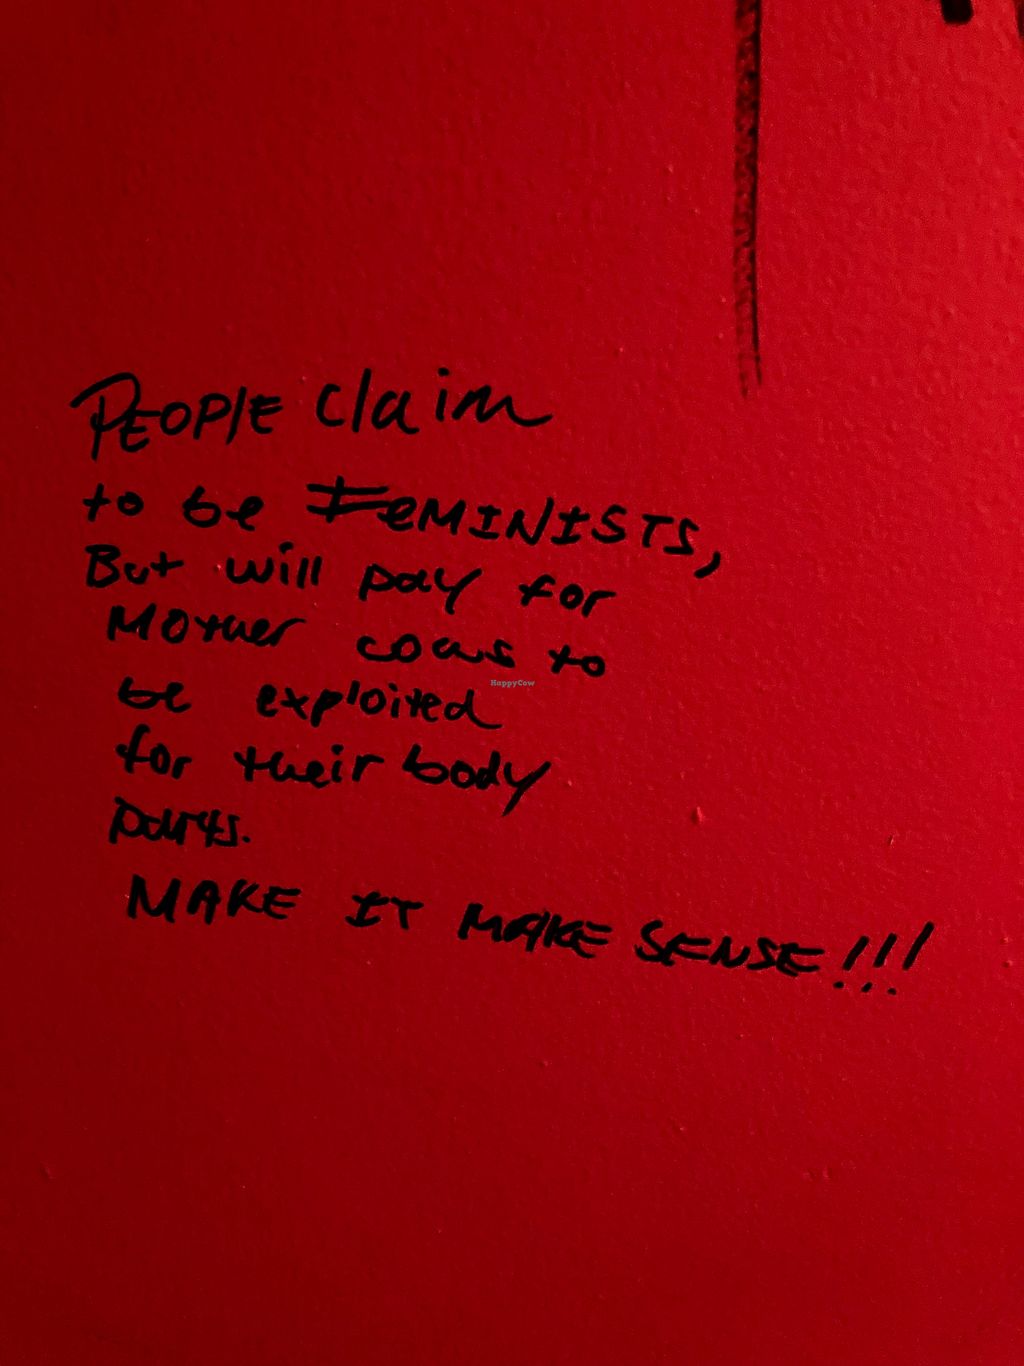 PEOPlE claim
to be FeMINISTS,
But will pay for
Mother cows to
be exploited
for their body
parts.
MAKE IT MAKE SENSE!!!
HappyCow